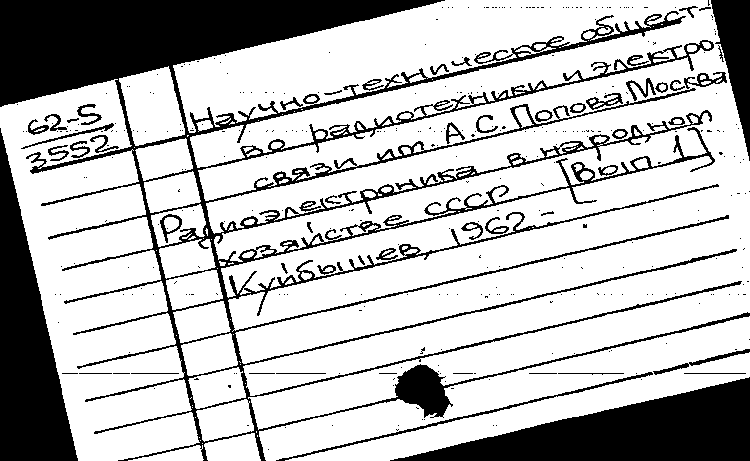 62-5
3552
Научно-техническое общест-
во радиотехники и электро-
связи им. А.С. Попова. Москва
Радиоэлектроника в народном
хозяйстве СССР [Вып. 1].
Куйбышев, 1962.-